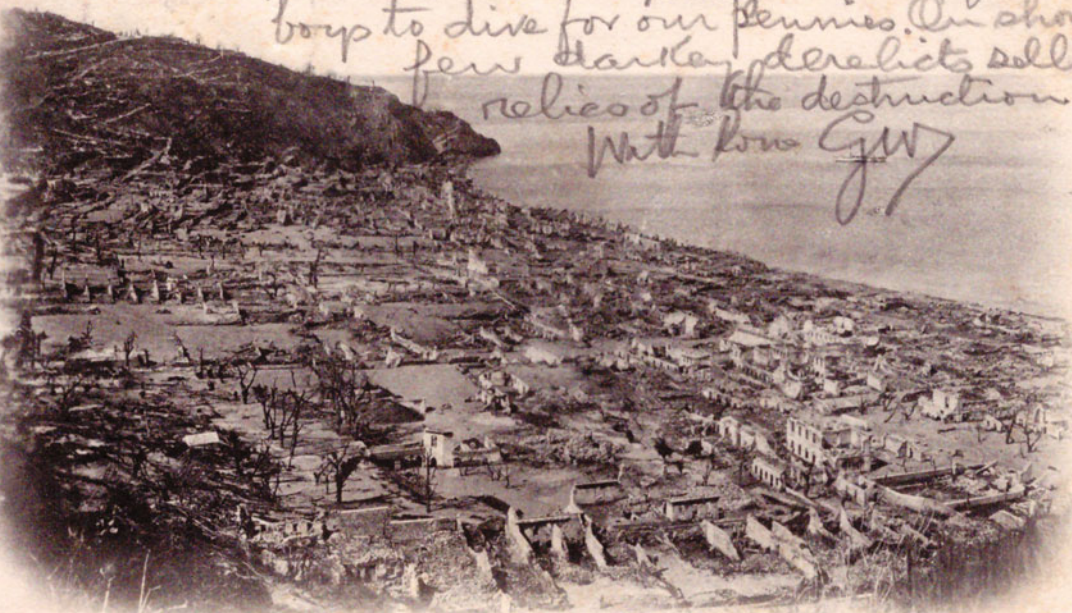 boys to dive for our pennies. On sho
few darkey derelicts sell
relics of the destruction
With love GW